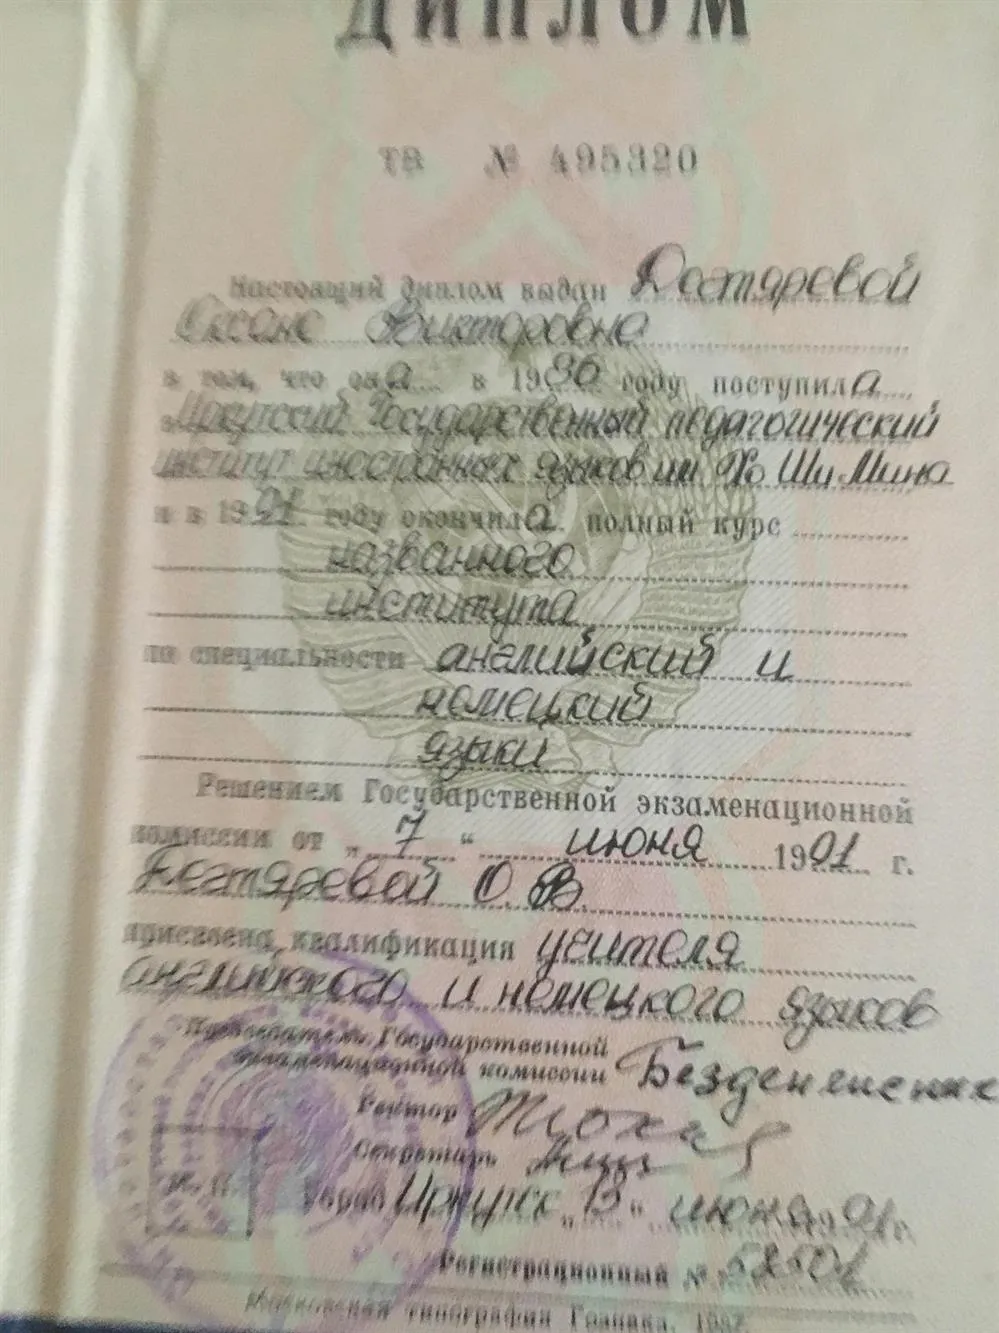 ДИПЛОМ
ТВ № 495320
Настоящий диплом выдан Дегтяревой
Оксане Викторовне
в том, что она в 1986 году поступила
Иркутский Государственный педагогический
институт иностранных языков им Хо Ши Мина
и в 1991 году окончила полный курс
названного
института
по специальности английский и
немецкий
языки
Решением Государственной экзаменационной
комиссии от „7“ июня 1991 г.
Дегтяревой О. В.
присвоена квалификация учителя
английского и немецкого языков
Председатель Государственной
экзаменационной комиссии
Ректор
Секретарь
М. П.
Город Иркутск „13“ июня 1991 г.
Регистрационный №
Московская типография Гознака. 1987.